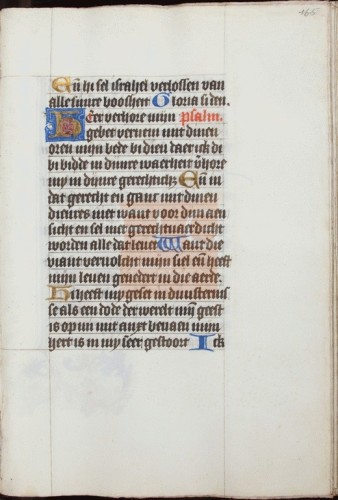 165
En hi sel israhel verlossen van
alle sinre boosheit Gloria si den.
Heer verhore mijn psalm.
gebet verneem mit dinen
oren mijn bede bi dien daer ic di
bi bidde in dinre waerheit verhore
my in dijnre gerechticheit En in
dat gerecht en gant mit dinen
dienres niet want voor dijn aen
sicht en sel niet gerechtvaerdicht
worden alle dat levet Want die
viant vervolcht mijn siel en heeft
mijn leven genedert in die aerde.
Hi heeft my geset in duusternis
se als een dode der werelt mijn geest
is op mi mit anxt bevaen mijn
hert is in my seer gestoort Ick